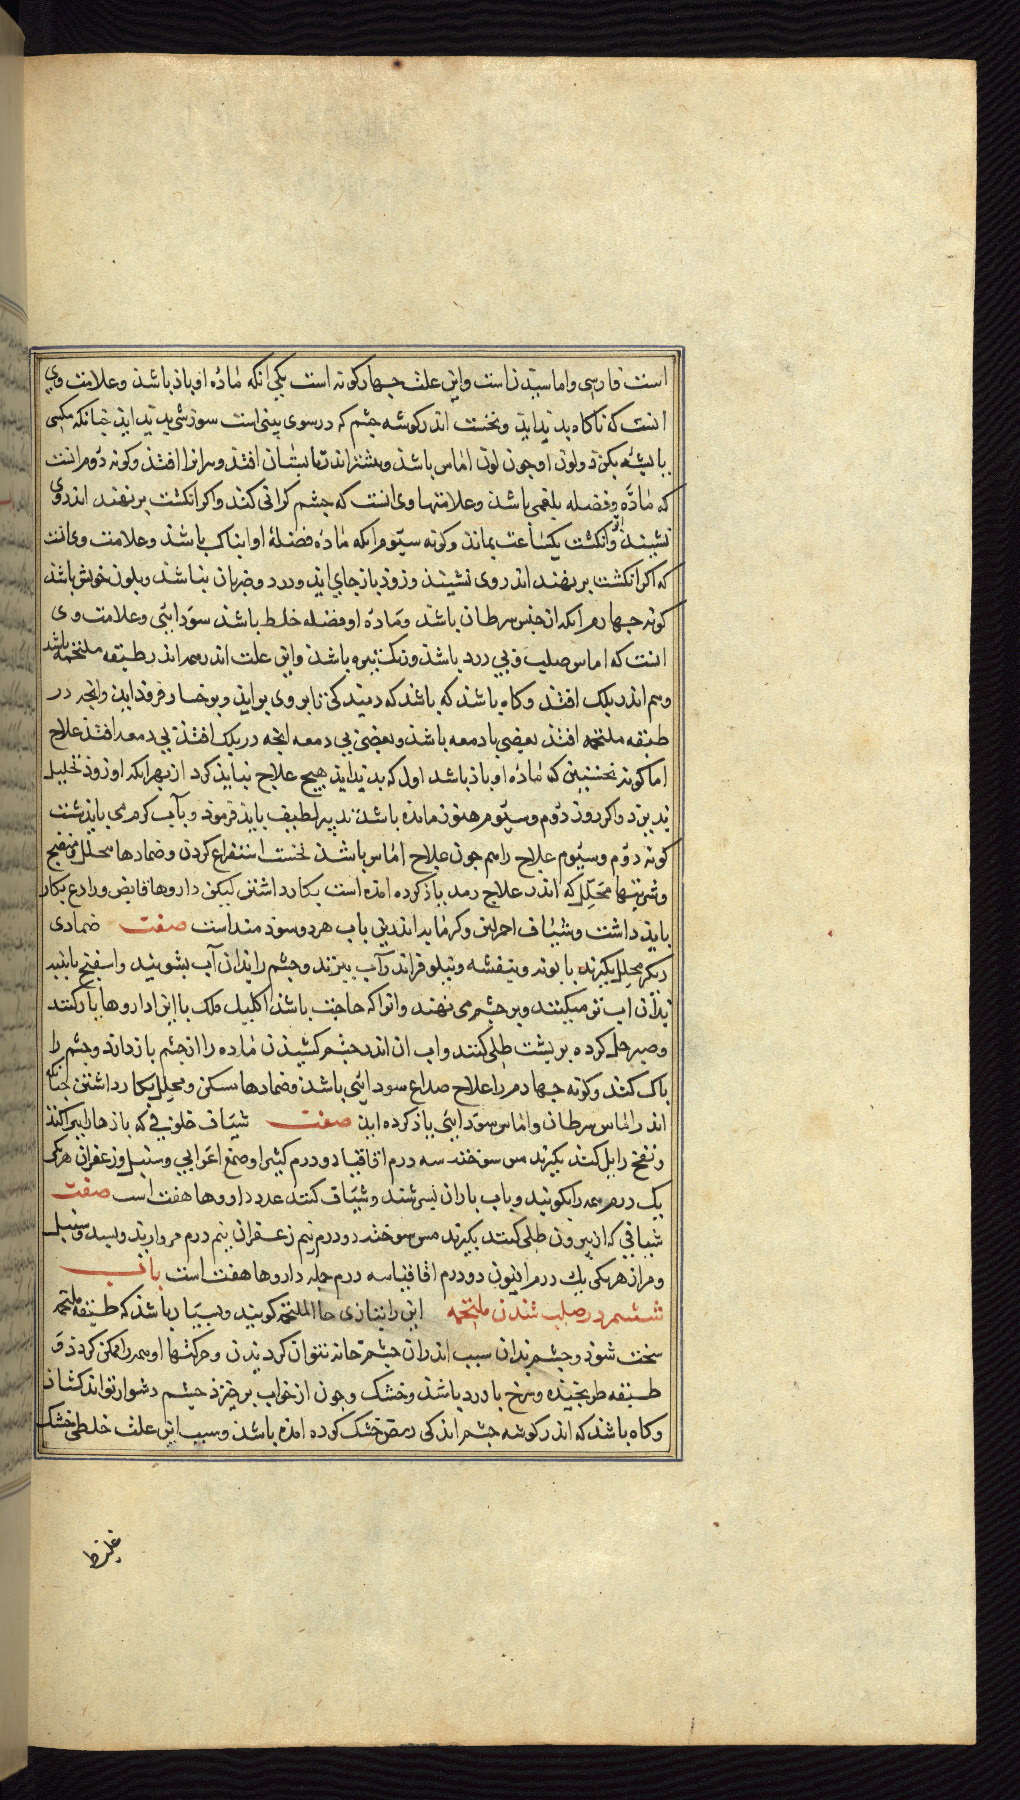 است فارسی واماسیدنست واین علت جهارکونه است یکی انکه مادّه او باذ باشذ وعلامت وی
انست که ناکاه بدید اید ونخست اندرکوشه جشم که درسوی بینی است سوزشی بدید ایذ جنانکه مکسی
یا بشه بکزد ولون او جون لون اماس باشذ وبیشتر اندر تابستان افتذ وپیرانرا افتذ وکونه دوّم انست
که مادّه وفضله بلغمی باشذ وعلامتهاوی انست که جشم کرانی کند واکر انکشت برنهند اندروی
نشیند واثر انکشت یکساعت بماند وکونه سیّوم انکه مادّه فضلهٔ او ابناک باشذ وعلامت وی انست
که اکر انکشت برنهند اندر وی نشیند وزوذ باز جای اید ودرد وضربان نباشذ وبلون خویش باشذ
کونه جهارم انکه از جنس سرطان باشذ ومادّه او فضله خلط باشذ سودایی وعلامت وی
انست که اماس صلب وبی درد باشذ ورنک تیره باشذ واین علت اندر همه اندر طبقه ملتحمه باشد
وهم اندر بلک افتذ وکاه باشذ که باشذ که دمیدکی تا بروی برایذ وبرخسار فروذ ایذ وانجه در
طبقه ملتحمه افتذ بعضی با دمعه باشذ وبعضی بی دمعه انجه در بلک افتذ بی دمعه افتذ علاج
اما کونه نخستین که مادّه او باذ باشد اول که بدید ایذ هیج علاج نباید کرد از بهر انکه او زوذ تحلیل
پذیرذ واکر روز دوّم وسیّوم هنوز مانده باشذ تدبیر لطیف باید فرموذ وبآب کرم می باید شست
کونه دوّم وسیوم علاج راهم جون علاج اماس باشذ نخست استفراغ کردن وضمادها محلل ومنضج
وشربتها محلل که اندر علاج رمد یاذ کرده امده است بکار داشتن لیکن داروها قابض ورادع بکار
نباید داشت وشیاف احمر لین وکرمابه اندرین باب هر دو سوذمند است صفت ضمادی
دیکر محلل بکیرند بابونه وبنفشه ونیلوفر اندر آب بپزند وجشم را بدان آب بشویند واسفنج یا پنبه
بذان اب تر میکنند وبر جشم می نهند وانرا که حاجت باشذ اکلیل ملک با این داروها یار کنند
وصبر حل کرده بر پشت طلی کنند واب ان اندر جشم کشیذن ماده را از جشم باز دارد وجشم را
پاک کند وکونه جهارم را علاج صداع سودایی باشذ وضمادها مسکن ومحلل بکار داشتن جنانکه
اندر اماس سرطان واماس سودایی یاذ کرده اید صفت شیاف خلوقی که باذها را پراکند
ونفخ زایل کند بکیرند مس سوخته سه درم اقاقیا دو درم کثیرا وصمغ اعرابی وسنبل وزعفران هریکی
یک درم همه را بکوبند وباب باران بسرشند وشیاف کنند عدد داروها هفت است صفت
شیافی که از بیرون طلی کنند بکیرند مس سوخته دو درم نیم زعفران نیم درم مروارید وبسد وسنبل
ومر از هریکی یک درم افیون دو درم اقاقیا سه درم جمله داروها هفت است باب
ششم در صلب شدن ملتحمه این را بتازی جسا الملتحمه کویند وبسیار باشذ که طبقه ملتحمه
سخت شوذ وجشم بدان سبب اندران جشم خانه نتوان کردیدن وحرکتها او همه را ممکن کردد و
طبقه طرنجیذه وسرخ با درد باشذ وخشک وجون از خواب برخیزذ جشم دشوار تواند کشاذ
وکاه باشذ که اندر کوشه جشم اندکی رمص خشک کرده امده باشذ وسبب این علت خلطی خشک
غلیظ